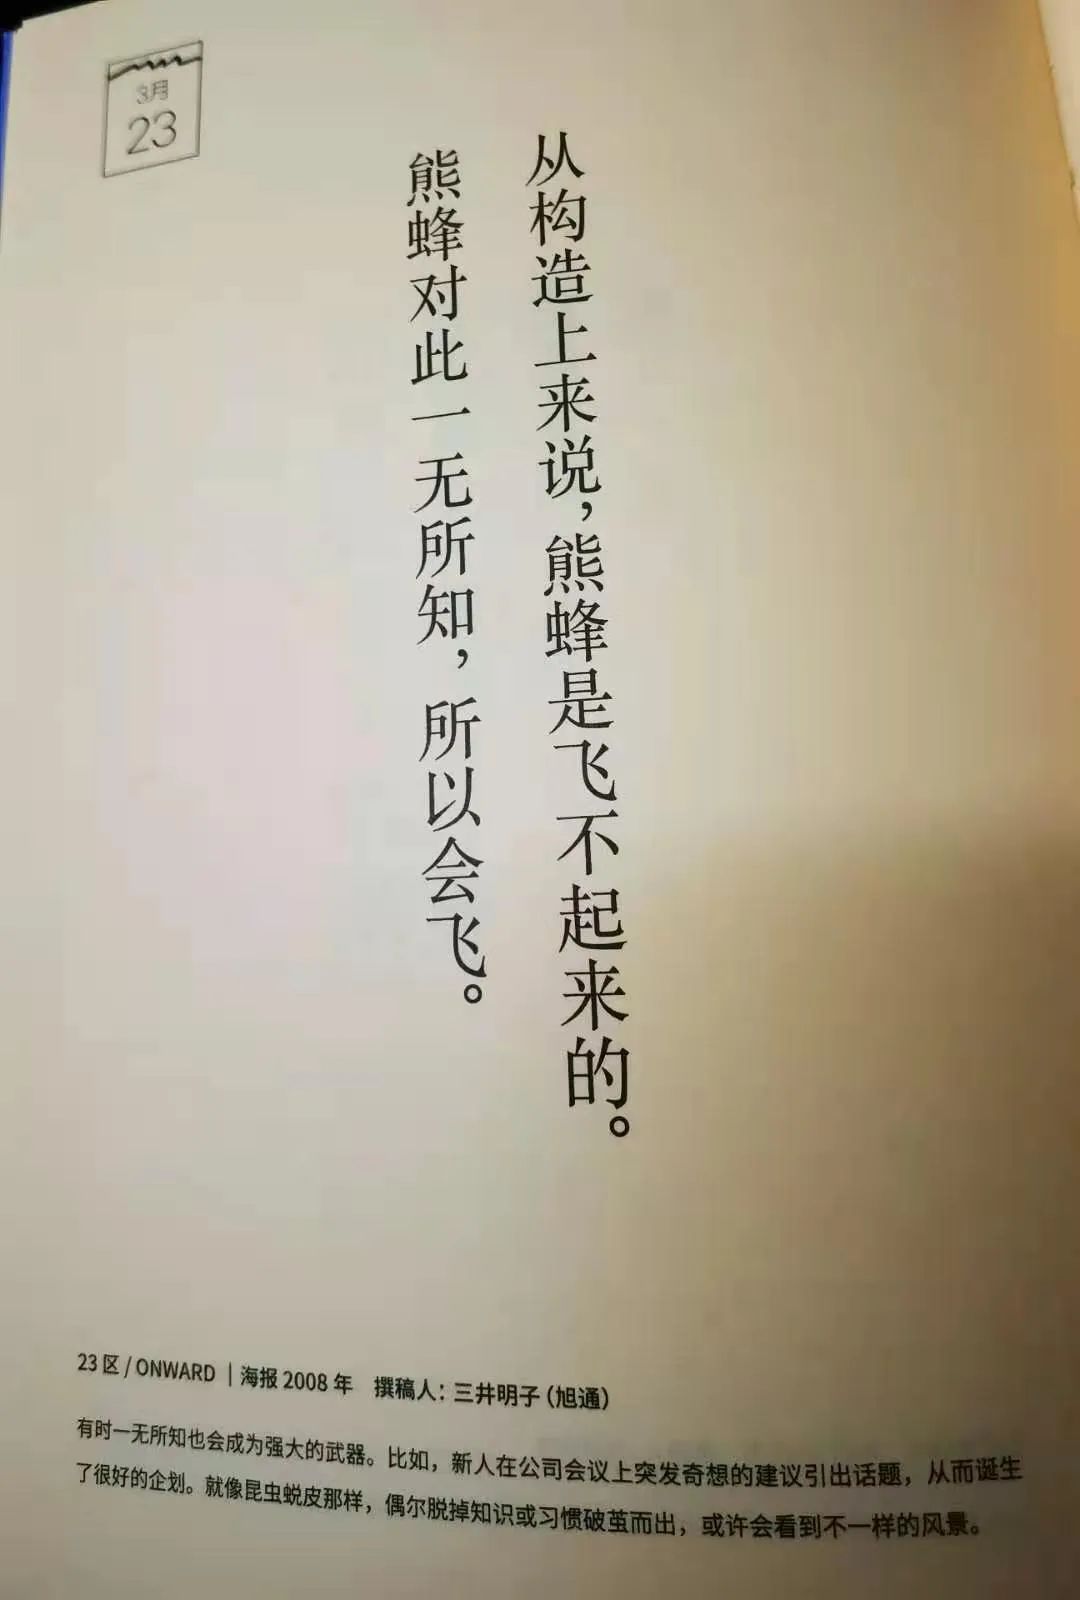 3月
23
从构造上来说，熊蜂是飞不起来的。
熊蜂对此一无所知，所以会飞。
23 区 / ONWARD ｜海报 2008 年　撰稿人：三井明子（旭通）
有时一无所知也会成为强大的武器。比如，新人在公司会议上突发奇想的建议引出话题，从而诞生
了很好的企划。就像昆虫蜕皮那样，偶尔脱掉知识或习惯破茧而出，或许会看到不一样的风景。